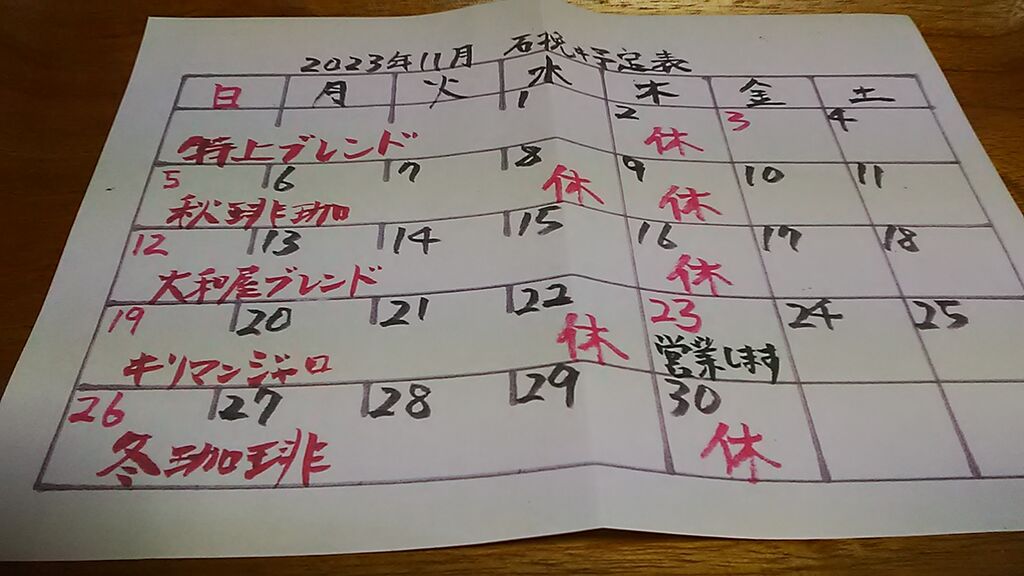 2023年11月 予定表
日 月 火 水 木 金 土
1 2 3 4
特上ブレンド 休
5 6 7 8 9 10 11
秋珈琲 休 休
12 13 14 15 16 17 18
大和屋ブレンド 休
19 20 21 22 23 24 25
キリマンジャロ 休 営業します
26 27 28 29 30
冬珈琲 休